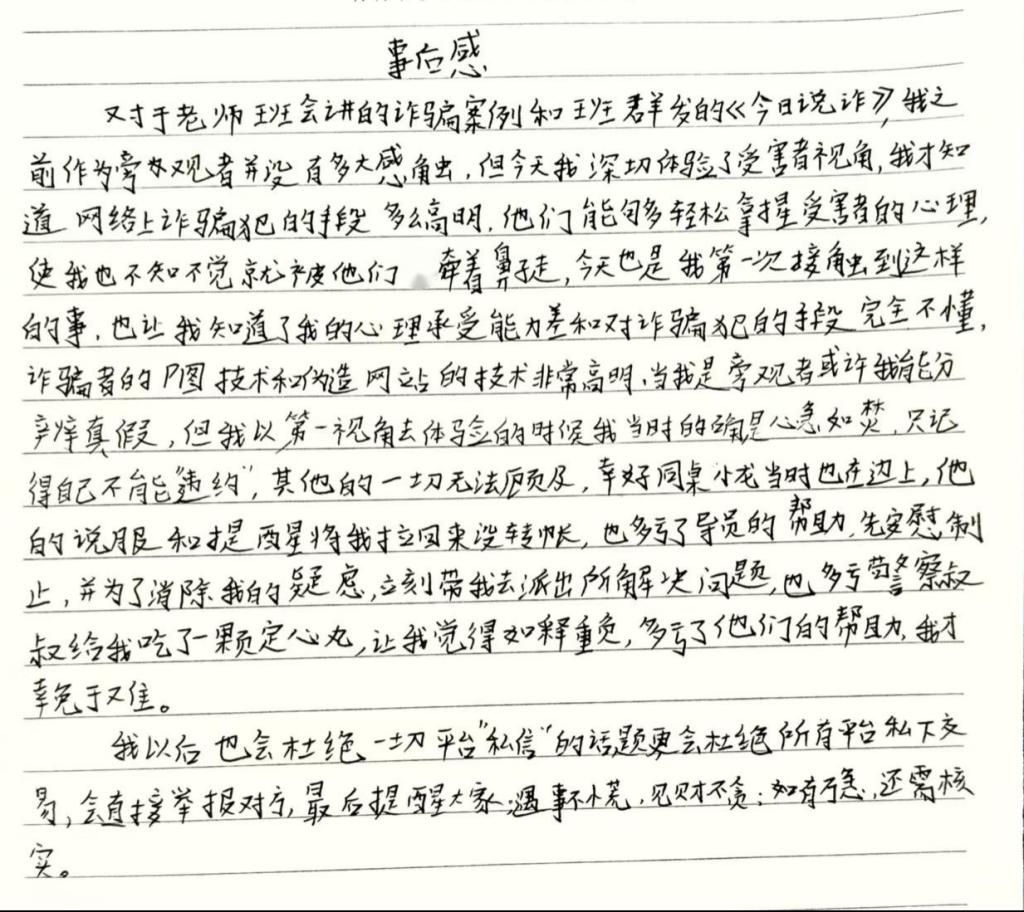 事后感
对于老师班会讲的诈骗案例和班群发的《今日说诈》,我之
前作为旁观者并没有多大感触,但今天我深切体验了受害者视角,我才知
道网络上诈骗犯的手段多么高明,他们能够多轻松拿捏受害者的心理,
使我也不知不觉就被他们牵着鼻子走,今天也是我第一次接触到这样
的事,也让我知道了我的心理承受能力差和对诈骗犯的手段完全不懂,
诈骗者的P图技术和伪造网站的技术非常高明,当我是旁观者或许我能分
辨真假,但我以第一视角去体验的时候我当时的确是心急如焚,只记
得自己不能"违约",其他的一切无法顾及,幸好同桌小龙当时也在边上,他
的说服和提醒将我拉回来没转帐,也多亏了导员的帮助,先安慰制
止,并为了消除我的疑虑,立刻带我去派出所解决问题,也多亏警察叔
叔给我吃了一颗定心丸,让我觉得如释重负,多亏了他们的帮助,我才
幸免于难。
我以后也会杜绝一切平台"私信"的话题更会杜绝所有平台私下交
易,会直接举报对方,最后提醒大家,遇事不慌,见财不贪;如有急,还需核
实。